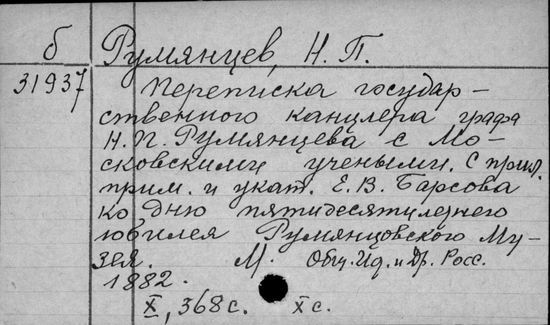 б Румянцев, Н. П.
31937 Переписка государ-
ственного канцлера графа
Н. П. Румянцева с Мо-
сковскими учеными. С прил.
прим. и указ. Е. В. Барсова
ко дню пятидесятилетнего
юбилея Румянцовского Му-
зея. М. Общ. Ист. и Др. Росс.
1882.
X, 368 с. X с.